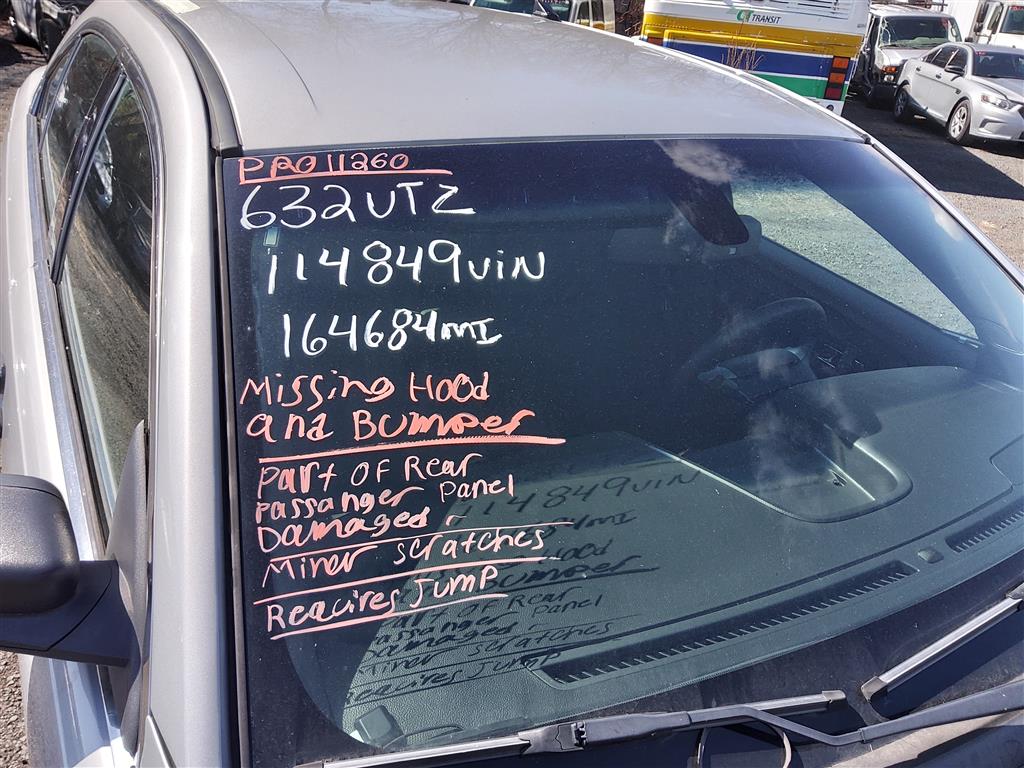 TRANSIT
PRO11260
632UTZ
114849 VIN
164684 MI
Missing Hood
and Bumper
Part OF Rear
Passanger Panel
Damaged
Miner scratches
Reacires Jump
114849 VIN